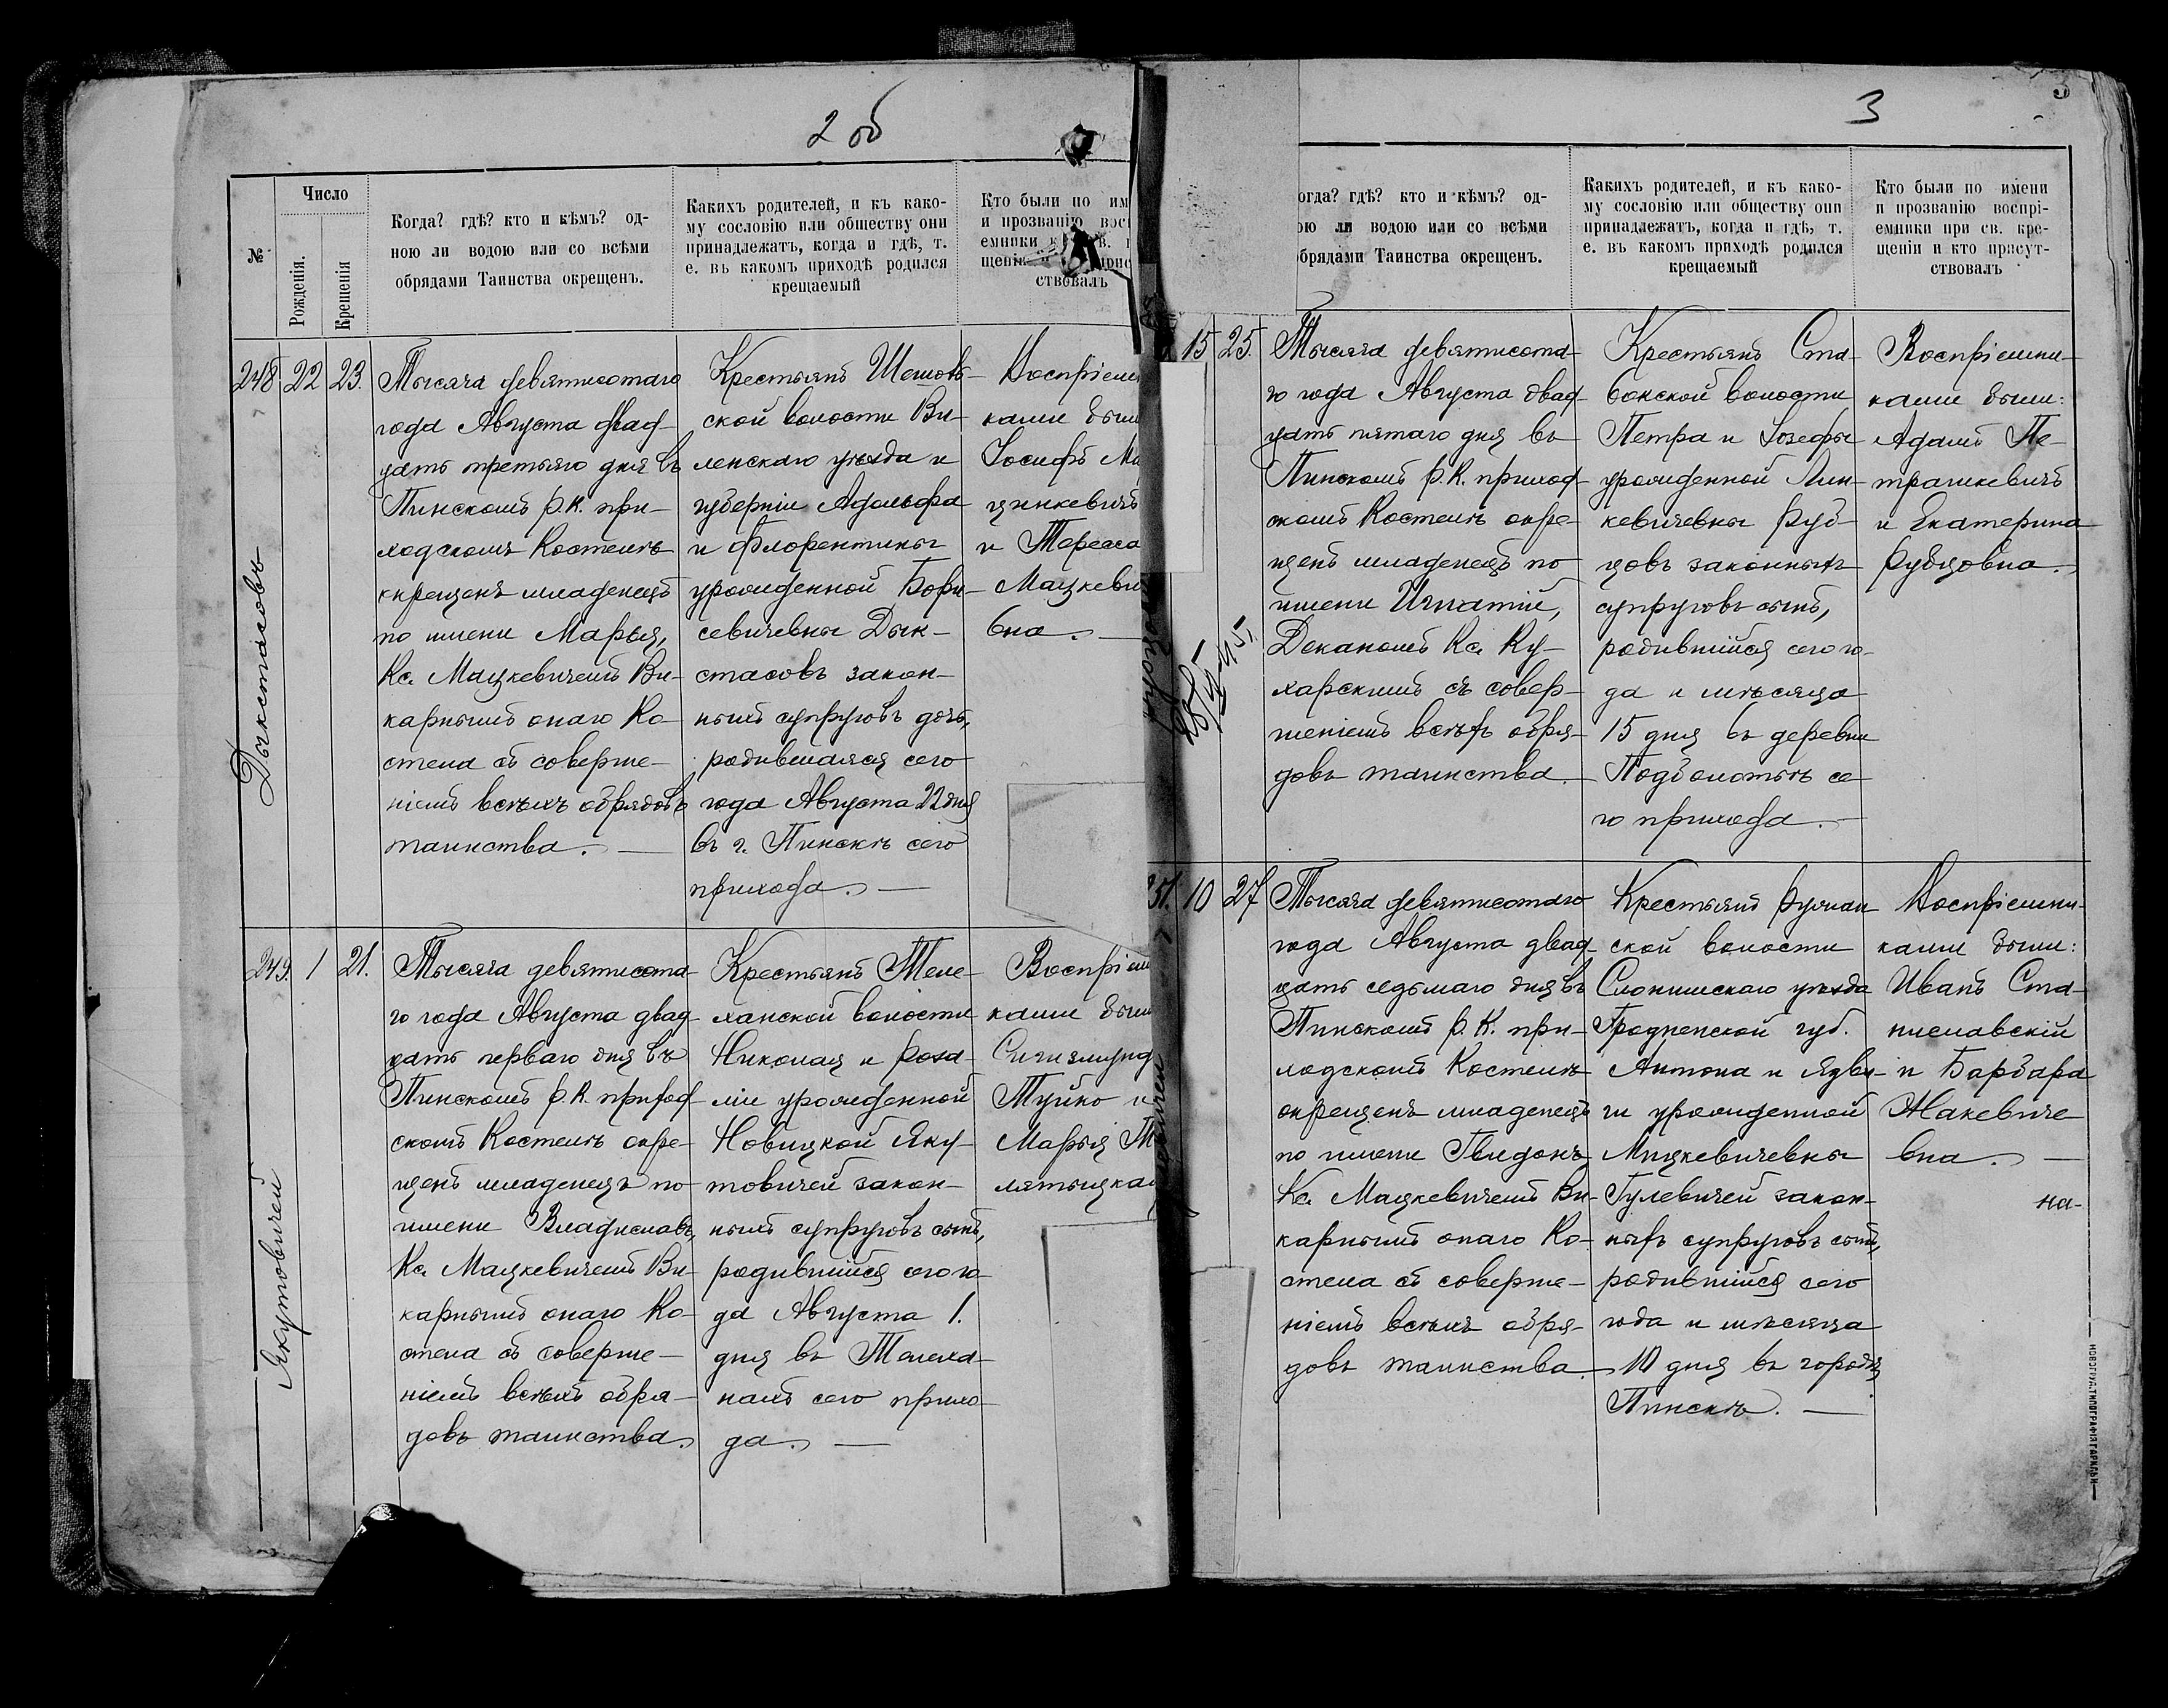 2 об
№
Число
Рожденія.
Крещенія
Когда? гдѣ? кто и кѣмъ? од-
ною ли водою или со всѣми
обрядами Таинства окрещенъ.
Какихъ родителей, и къ како-
му сословію или обществу они
принадлежатъ, когда и гдѣ, т.
е. въ какомъ приходѣ родился
крещаемый
Кто были по им
и прозванію восп
емники
щені
ствовалъ
248
22
23.
Дыкстасовъ
Тысяча девятисотаго
года Августа двад-
цать третьяго дня въ
Пинскомъ Р. К. при-
ходскомъ Костелѣ
окрещенъ младенецъ
по имени Марыя,
Кс. Мацкевичемъ Ви-
карнымъ онаго Ко-
стела съ соверше-
ніемъ всѣхъ обрядовъ
таинства.
Крестьянъ Шешоль-
ской волости Ви-
ленскаго уѣзда и
губерніи Адольфа
и Флорентины
урожденной Бори-
севичевны Дык-
стасовъ закон-
ныхъ супруговъ дочь,
родившаяся сего
года Августа 22 дня
въ г. Пинскѣ сего
прихода.
Воспріем
ками были
Іосифъ Ма
цинкевичъ
и Тереса
Мацкеви
вна.
249.
1
21.
Якутовичей
Тысяча девятисота-
го года Августа двад-
цать перваго дня въ
Пинскомъ Р. К. приход-
скомъ Костелѣ окре-
щенъ младенецъ по
имени Владиславъ,
Кс. Мацкевичемъ Ви-
карнымъ онаго Ко-
стела съ соверше-
ніемъ всѣхъ обря-
довъ таинства.
Крестьянъ Теле-
ханской волости
Николая и Роза-
ліи урожденной
Новицкой Яку-
товичей закон-
ныхъ супруговъ сынъ,
родившійся сего го-
да Августа 1.
дня въ Телеха-
нахъ сего прихо-
да.
Воспріем
ками были
Сигизмунд
Туйко и
Марыя
лятыцкая
3
огда? гдѣ? кто и кѣмъ? од-
ою ли водою или со всѣми
брядами Таинства окрещенъ.
Какихъ родителей, и къ како-
му сословію или обществу они
принадлежатъ, когда и гдѣ, т.
е. въ какомъ приходѣ родился
крещаемый
Кто были по имени
и прозванію воспрі-
емники при св. кре-
щеніи и кто присут-
ствовалъ
15
25.
Тысяча девятисота-
го года Августа двад-
цать пятаго дня въ
Пинскомъ Р. К. приход-
скомъ Костелѣ окре-
щенъ младенецъ по
имени Игнатій,
Деканомъ Кс. Ку-
харскимъ съ совер-
шеніемъ всѣхъ обря-
довъ таинства.
Крестьянъ Ста-
вокской волости
Петра и Іозефы
урожденной Лин-
кевичевны Руб-
цовъ законныхъ
супруговъ сынъ,
родившійся сего го-
да и мѣсяца
15 дня въ деревни
Подболотьѣ се-
го прихода.
Воспріемни-
ками были:
Адамъ Пе-
трашкевичъ
и Екатерина
Рубцовна.
51.
10
27
Тысяча девятисотаго
года Августа двад-
цать седьмаго дня въ
Пинскомъ Р. К. при-
ходскомъ Костелѣ
окрещенъ младенецъ
по имени Гвидонъ
Кс. Мацкевичемъ Ви-
карнымъ онаго Ко-
стела съ соверше-
ніемъ всѣхъ обря-
довъ таинства.
Крестьянъ Ружан-
ской волости
Слонимскаго уѣзда
Гродненской губ.
Антона и Ядви-
ги урожденной
Мицкевичевны
Гулевичей закон-
ныхъ супруговъ сынъ,
родившійся сего
года и мѣсяца
10 дня въ городѣ
Пинскѣ.
Воспріемни-
ками были:
Иванъ Ста-
ниславскій
и Барбара
Жакевиче
вна.
на-